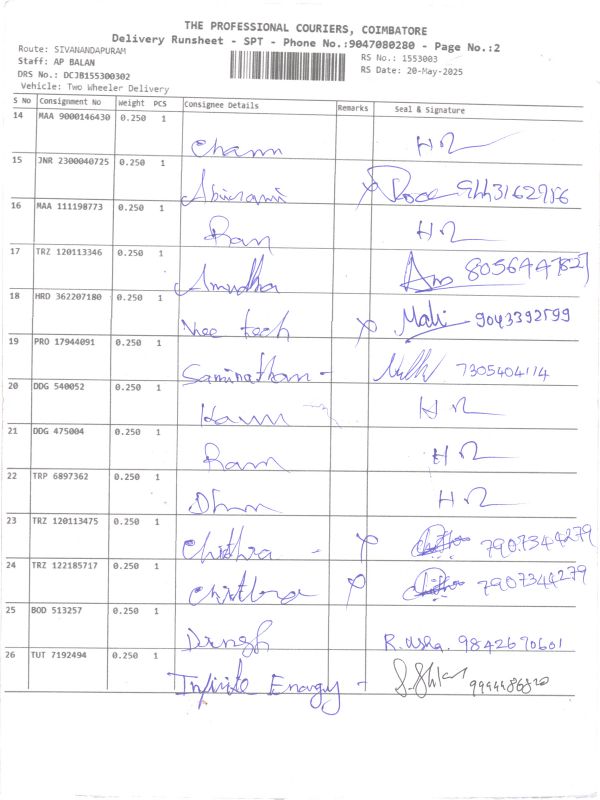 THE PROFESSIONAL COURIERS, COIMBATORE
Delivery Runsheet - SPT - Phone No.:9047080280 - Page No.:2
Route: SIVANANDAPURAM
RS No.: 1553003
Staff: AP BALAN
RS Date: 20-May-2025
DRS No.: DCJB155300302
Vehicle: Two Wheeler Delivery
S No Consignment No Weight PCS Consignee Details Remarks Seal & Signature
14 MAA 9000146430 0.250 1
Charm
15 JNR 2300040725 0.250 1
Abirami
16 MAA 111198773 0.250 1
Ram
17 TRZ 120113346 0.250 1
Amudha
18 HRD 362207180 0.250 1
tech Mali 9043392599
19 PRO 17944091 0.250 1
Saminathan - 7305404114
20 DDG 540052 0.250 1
21 DDG 475004 0.250 1
Ram
22 TRP 6897362 0.250 1
23 TRZ 120113475 0.250 1
Chithra - 7907344279
24 TRZ 122185717 0.250 1
Chithra 7907344279
25 BOD 513257 0.250 1
R. Usha. 9842670601
26 TUT 7192494 0.250 1
Infinite Enargy -